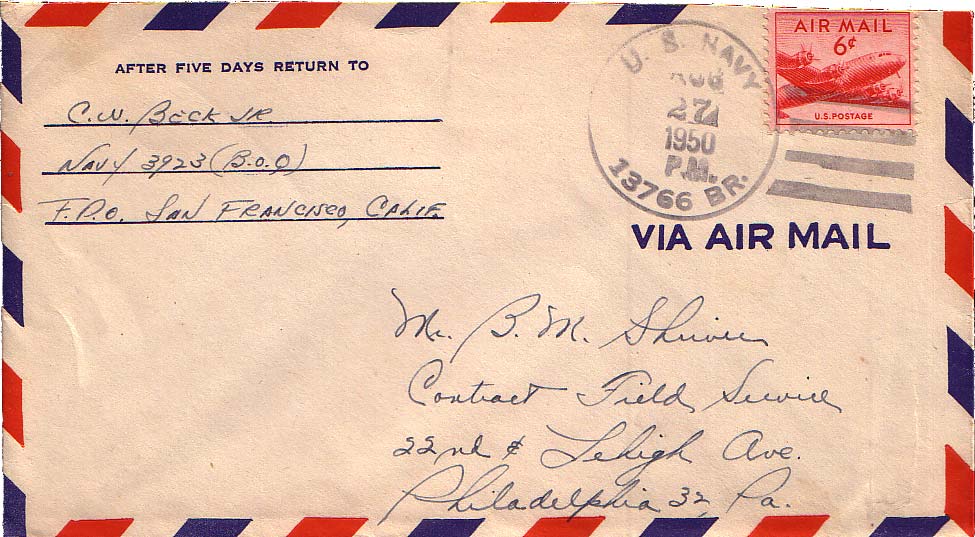 AFTER FIVE DAYS RETURN TO
C.W. BECK JR
NAVY 3923 (B.O.Q)
F.P.O. SAN FRANCISCO, CALIF.
U. S. NAVY
AUG
27
1950
P.M.
13766 BR.
AIR MAIL
6¢
U.S. POSTAGE
VIA AIR MAIL
Mr. B. M. Shriver
Contract Field Service
22nd & Lehigh Ave.
Philadelphia 32, Pa.